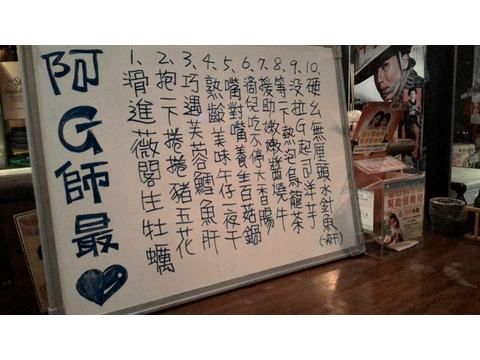 阿G師最
1.滑進薇閣生牡蠣
2.抱一下捲捲豬五花
3.巧遇芙蓉鱈魚肝
4.熟齡美味午仔一夜干
5.嘴對嘴養生百菇鍋
6.滴兒吃不停大香腸
7.援助嫩嫩醬燒牛
8.等一下熱泡烏龍茶
9.没拉G起司洋芋
10.硬幺無厘頭水針魚(一夜干)